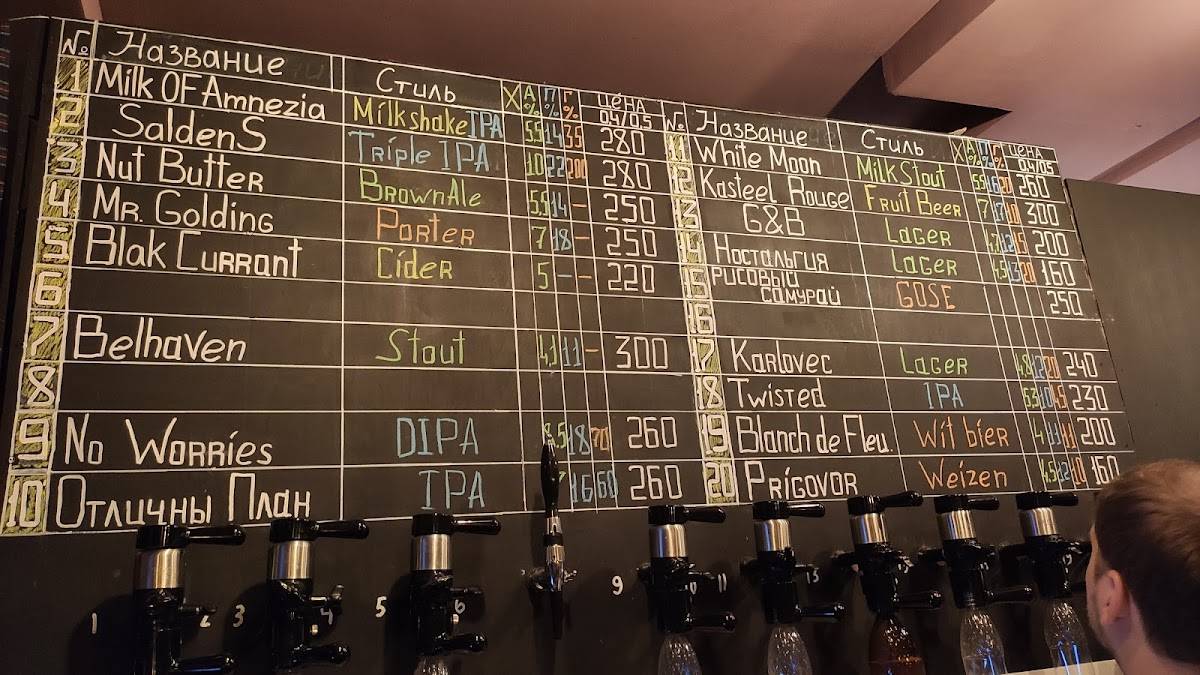 № Название Стиль А% П% Г% цена 0.4/0.5
1 Milk Of Amnezia Milkshake IPA 5.5 14 35 280
2 SaldenS Triple IPA 10 22 200 280
3 Nut Butter Brown Ale 5.5 14 - 250
4 Mr. Golding Porter 7 18 - 250
5 Blak Currant Cider 5 - - 220
6
7 Belhaven Stout 4.1 11 - 300
8
9 No Worries DIPA 8.5 18 70 260
10 Отличны План IPA 16 60 260
№ Название Стиль А% П% Г% цена 0.4/0.5
11 White Moon Milk Stout 5.5 16 20 260
12 Kasteel Rouge Fruit Beer 7 17 10 300
13 G&B Lager 4.7 12 15 200
14 Ностальгия Lager 4.5 13 20 160
15 Рисовый самурай GOSE 250
16
17 Karlovec Lager 4.8 12 20 240
18 Twisted IPA 5.3 230
19 Blanch de Fleu. Wit bier 4 11 11 200
20 Prigovor Weizen 4.5 12 10 160
1 2 3 4 5 6 9 10 11 13 15 17